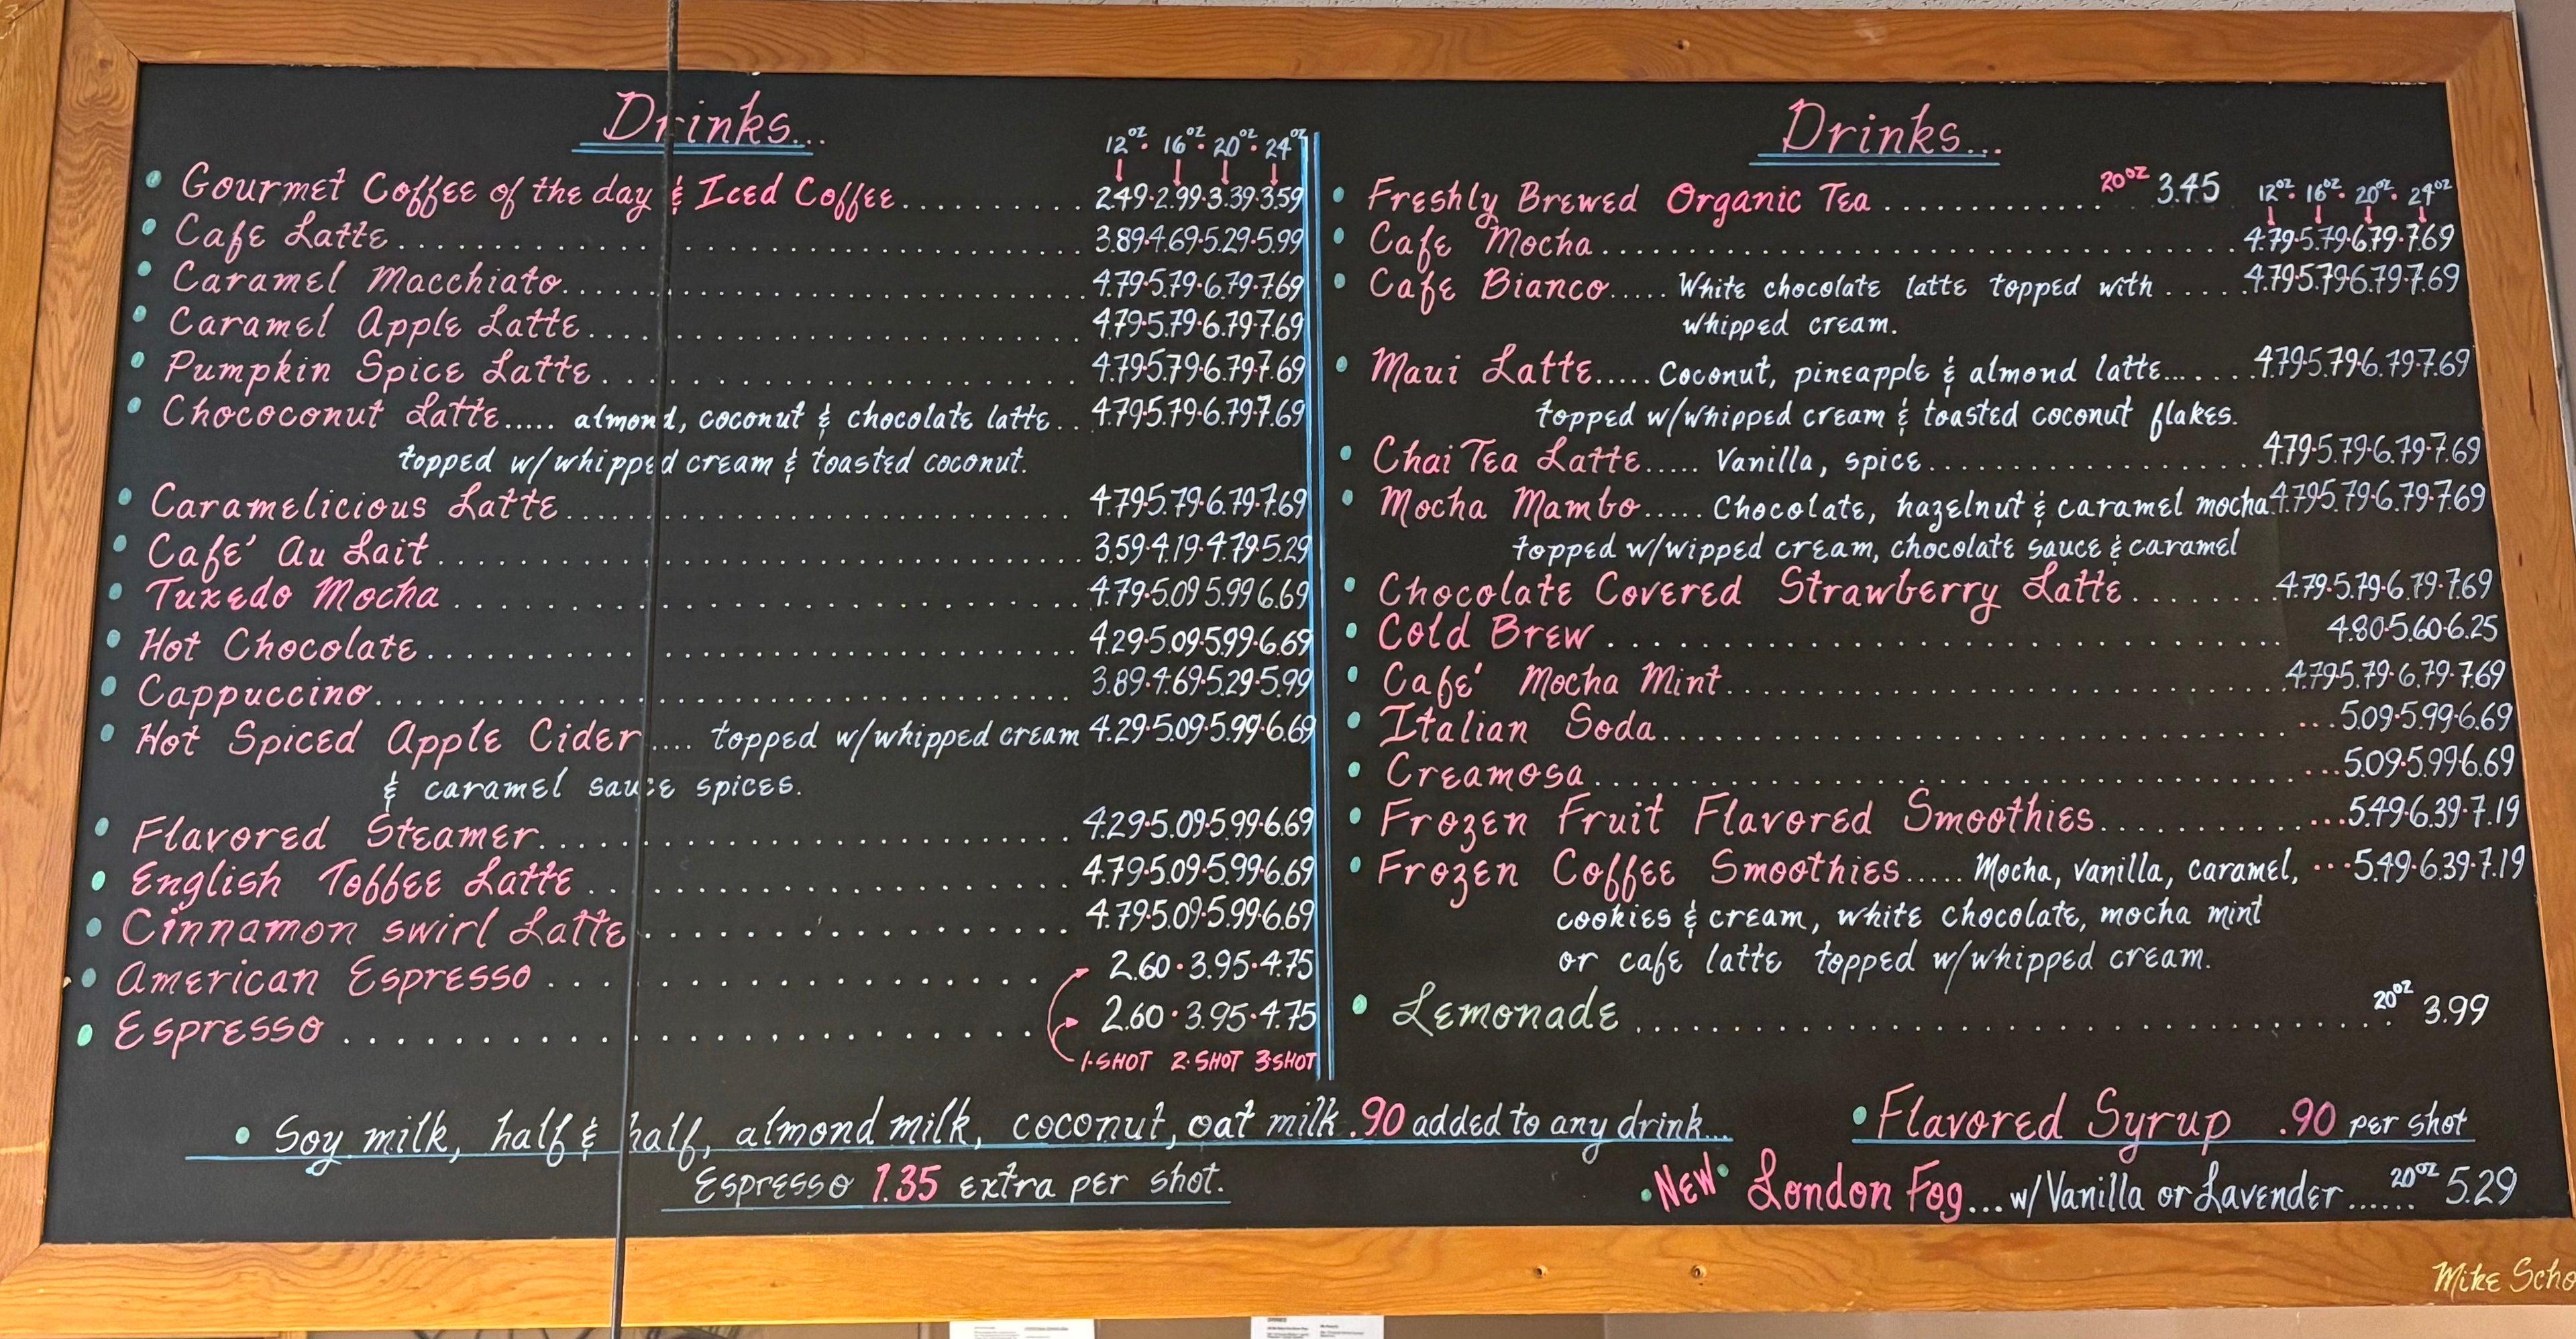 Drinks...
12oz · 16oz · 20oz · 24oz
• Gourmet Coffee of the day & Iced Coffee.......... 2.49·2.99·3.39·3.59
• Cafe Latte.......... 3.89·4.69·5.29·5.99
• Caramel Macchiato.......... 4.79·5.79·6.79·7.69
• Caramel Apple Latte.......... 4.79·5.79·6.79·7.69
• Pumpkin Spice Latte.......... 4.79·5.79·6.79·7.69
• Chococonut Latte..... almond, coconut & chocolate latte.. 4.79·5.79·6.79·7.69
topped w/whipped cream & toasted coconut.
• Caramelicious Latte.......... 4.79·5.79·6.79·7.69
• Cafe' Au Lait.......... 3.59·4.19·4.79·5.29
• Tuxedo Mocha.......... 4.79·5.09·5.99·6.69
• Hot Chocolate.......... 4.29·5.09·5.99·6.69
• Cappuccino.......... 3.89·4.69·5.29·5.99
• Hot Spiced Apple Cider.... topped w/whipped cream 4.29·5.09·5.99·6.69
& caramel sauce spices.
• Flavored Steamer.......... 4.29·5.09·5.99·6.69
• English Toffee Latte.......... 4.79·5.09·5.99·6.69
• Cinnamon swirl Latte.......... 4.79·5.09·5.99·6.69
• American Espresso.......... 2.60·3.95·4.75
• Espresso.......... 2.60·3.95·4.75
1-SHOT 2-SHOT 3-SHOT
Drinks...
• Freshly Brewed Organic Tea.......... 20oz 3.45 12oz · 16oz · 20oz · 24oz
• Cafe Mocha.......... 4.79·5.79·6.79·7.69
• Cafe Bianco..... White chocolate latte topped with..... 4.79·5.79·6.79·7.69
whipped cream.
• Maui Latte..... Coconut, pineapple & almond latte...... 4.79·5.79·6.79·7.69
topped w/whipped cream & toasted coconut flakes.
• Chai Tea Latte..... Vanilla, spice.......... 4.79·5.79·6.79·7.69
• Mocha Mambo..... Chocolate, hazelnut & caramel mocha 4.79·5.79·6.79·7.69
topped w/wipped cream, chocolate sauce & caramel
• Chocolate Covered Strawberry Latte........ 4.79·5.79·6.79·7.69
• Cold Brew.......... 4.80·5.60·6.25
• Cafe' Mocha Mint.......... 4.79·5.79·6.79·7.69
• Italian Soda.......... 5.09·5.99·6.69
• Creamosa.......... 5.09·5.99·6.69
• Frozen Fruit Flavored Smoothies.......... 5.49·6.39·7.19
• Frozen Coffee Smoothies..... Mocha, vanilla, caramel, ...5.49·6.39·7.19
cookies & cream, white chocolate, mocha mint
or cafe latte topped w/whipped cream.
• Lemonade.......... 20oz 3.99
• Soy milk, half & half, almond milk, coconut, oat milk .90 added to any drink...
Espresso 1.35 extra per shot.
• Flavored Syrup .90 per shot
• New • London Fog... w/Vanilla or Lavender...... 20oz 5.29
Mike Scho